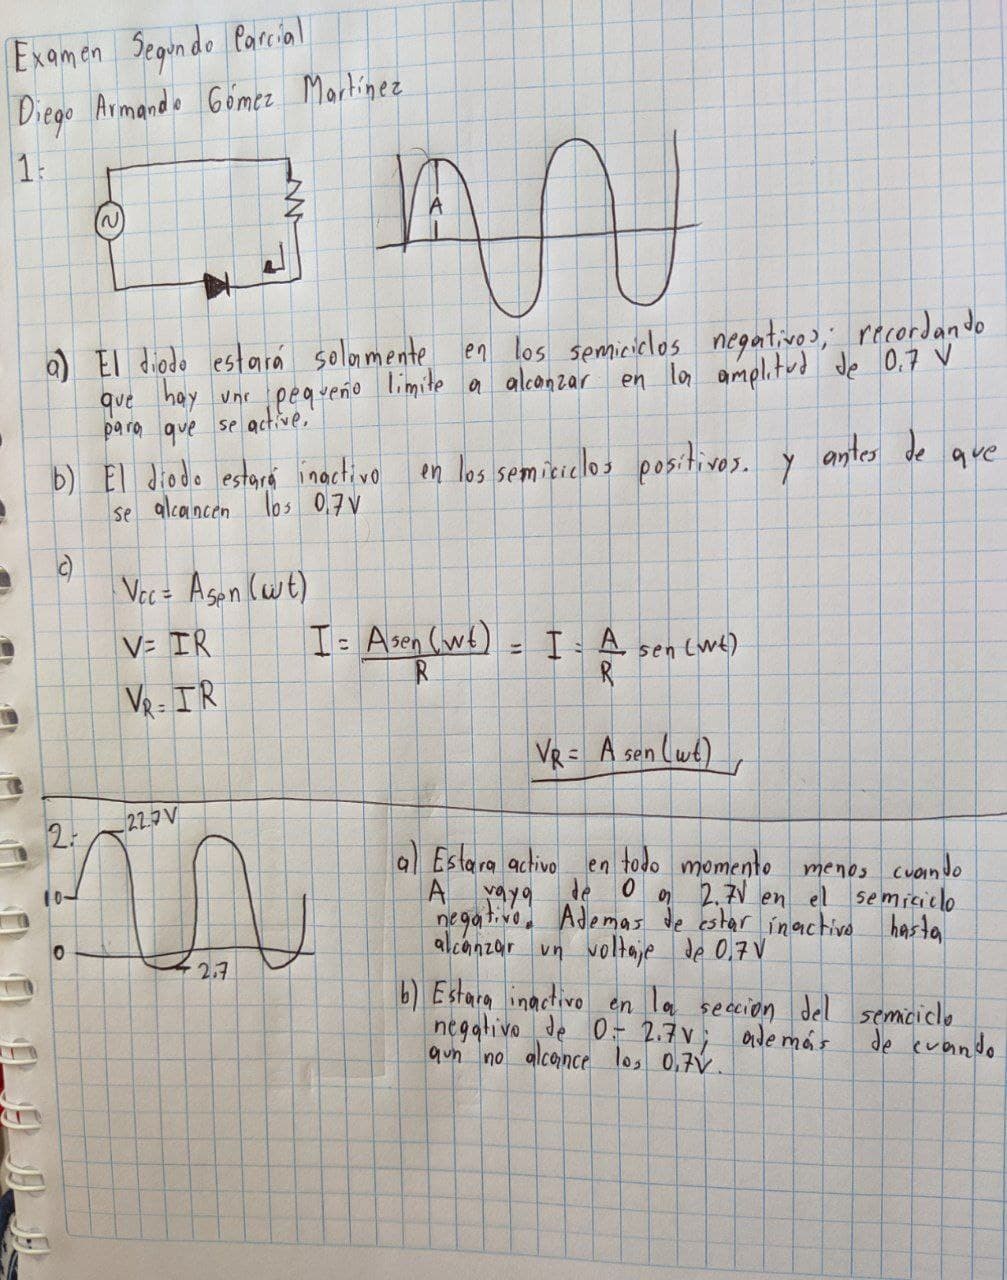 Examen Segundo Parcial
Diego Armando Gómez Martínez
1:
A
a) El diodo estará solamente en los semiciclos negativos; recordando
que hay una pequeño limite a alcanzar en la amplitud de 0.7 V
para que se active.
b) El diodo estará inactivo en los semiciclos positivos. y antes de que
se alcancen los 0.7V
c)
Vcc = A sen(wt)
V= IR I = A sen(wt) / R = I = A / R sen(wt)
VR = IR
VR = A sen(wt)
2:
22.7V
10
0
-2.7
a) Estara activo en todo momento menos cuando
A vaya de 0 a 2.7V en el semiciclo
negativo. Ademas de estar inactivo hasta
alcanzar un voltaje de 0.7V
b) Estara inactivo en la seccion del semiciclo
negativo de 0 - 2.7v; además de cuando
aun no alcance los 0.7V.